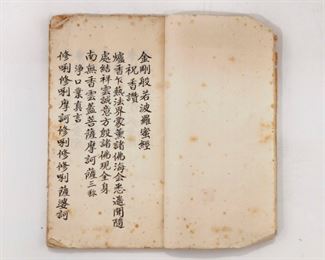 金剛般若波羅蜜經
祝香讚
爐香乍熱法界蒙薰諸佛海會悉遙聞隨
處結祥雲誠意方殷諸佛現全身
南無香雲蓋菩薩摩訶薩三称
淨口業真言
修唎修唎摩訶修唎修修唎薩婆訶